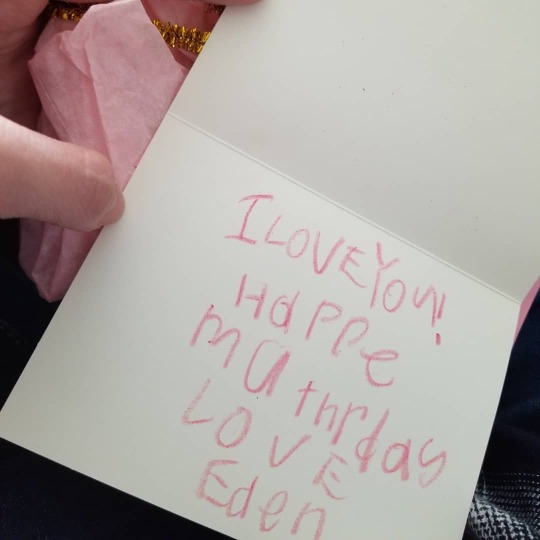 I LOVE You!
Happe
mathrdas
LOVE
Eden